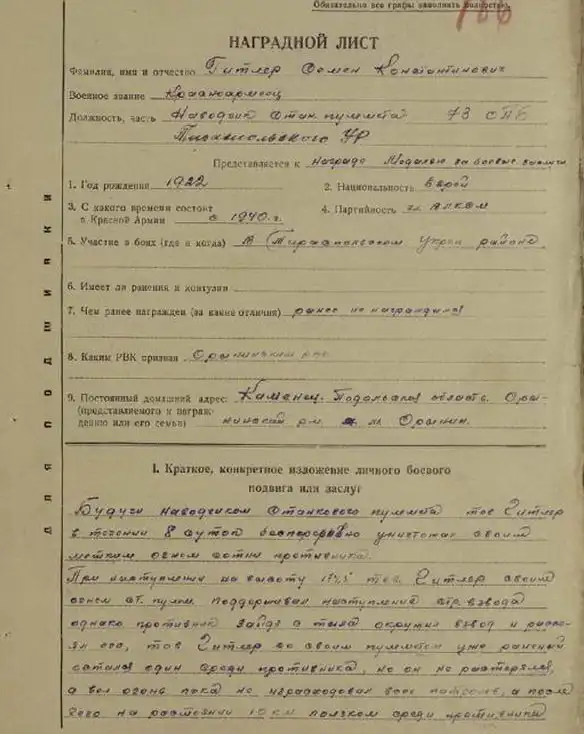 Обязательно все графы заполнить полностью.
НАГРАДНОЙ ЛИСТ
Фамилия, имя и отчество Гитлер Семен Константинович
Военное звание Красноармеец
Должность, часть Наводчик стан. пулемета 73 ОПБ
Тираспольского УР
Представляется к награде Медалью за боевые заслуги
1. Год рождения 1922
2. Национальность Еврей
3. С какого времени состоит
в Красной Армии с 1940 г.
4. Партийность чл. ВЛКСМ
5. Участие в боях (где и когда) в Тираспольском Укреп районе
6. Имеет ли ранения и контузии
7. Чем ранее награжден (за какие отличия) ранее не награждался
8. Каким РВК призван Орынинским рвк
9. Постоянный домашний адрес: Каменец-Подольская область. Оры-
(представляемого к награж-
дению или его семьи) нинский р-н м. Орынин.
I. Краткое, конкретное изложение личного боевого
подвига или заслуг
Будучи наводчиком станкового пулемета тов Гитлер
в течении 8 суток беспрерывно уничтожал своим
метким огнем сотни противника.
При наступлении на высоту тов. Гитлер своим
огнем ст. пулем. поддерживал наступление стр. взвода
однако противник зайдя с тыла окружил взвод и рассе-
ял его, тов Гитлер со своим пулеметом уже раненый
остался один среди противника, но он не растерялся,
а вел огонь пока не израсходовал всех патронов, а после
чего на расстоянии 10 км ползком среди противника
для подшивки